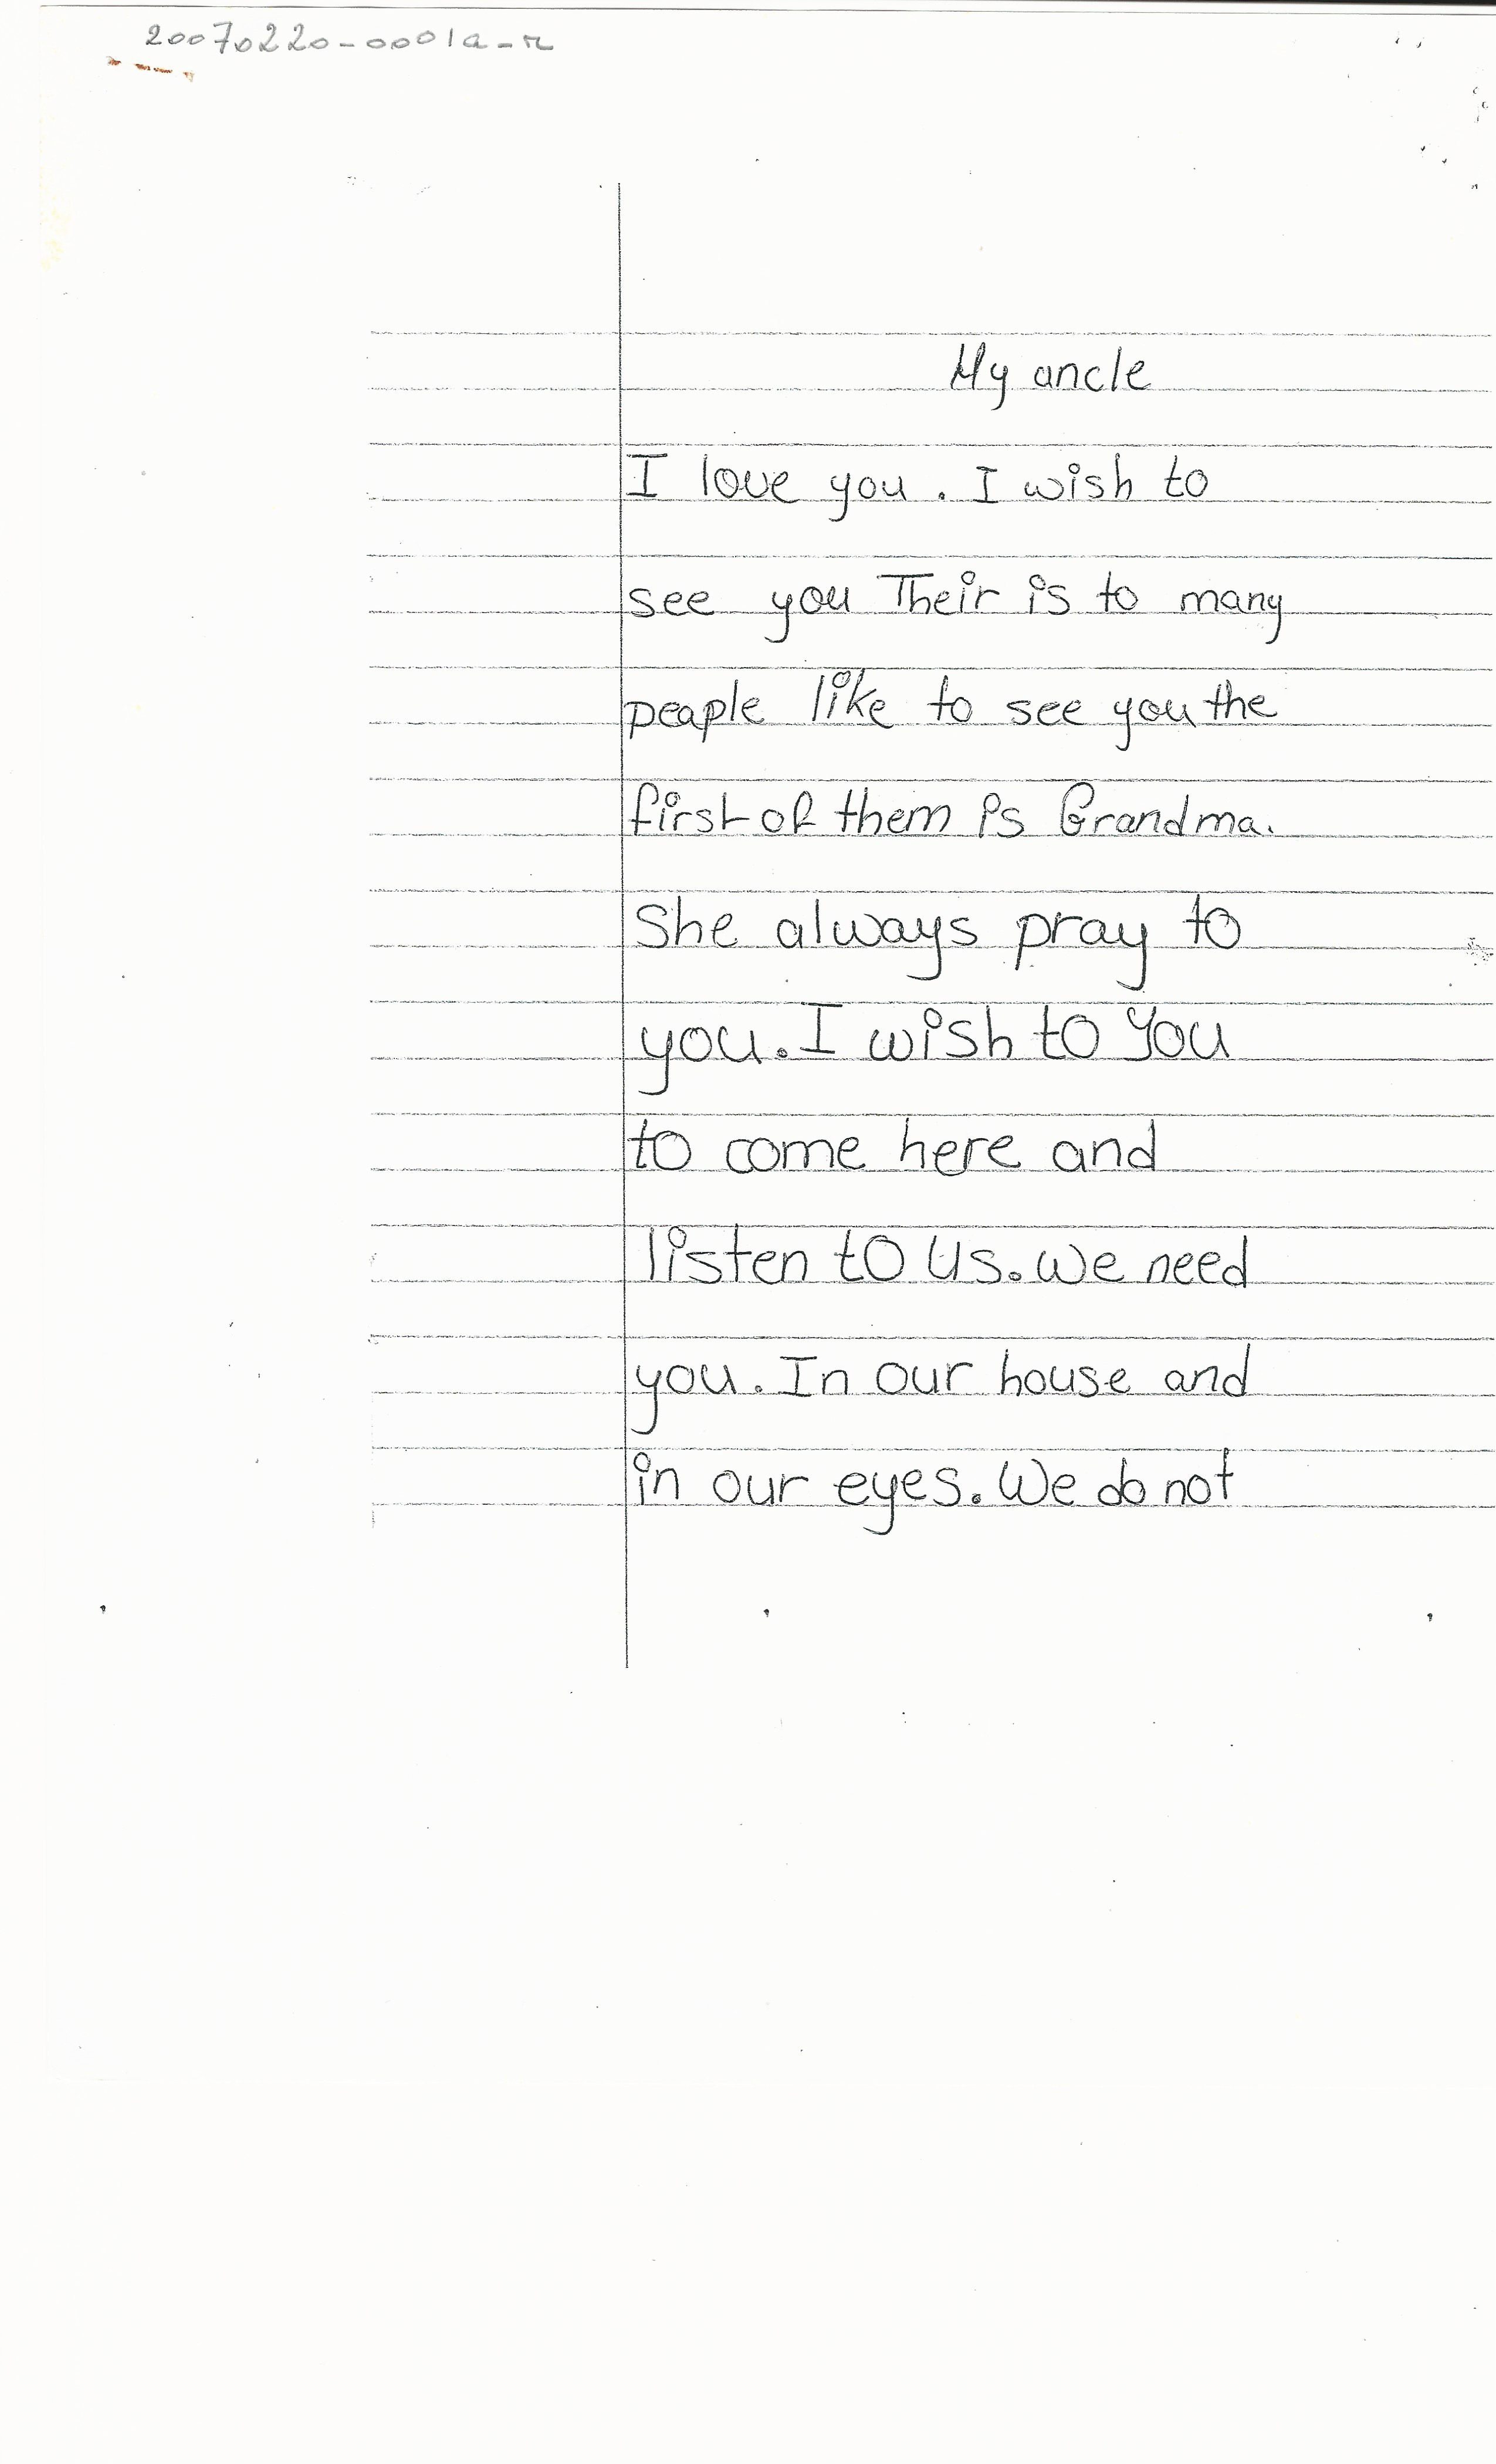 20070220-0001a-r
My ancle
I love you. I wish to
see you Their is to many
peaple like to see you the
first of them is Grandma.
She always pray to
you. I wish to You
to come here and
listen to us. We need
you. In our house and
in our eyes. We do not